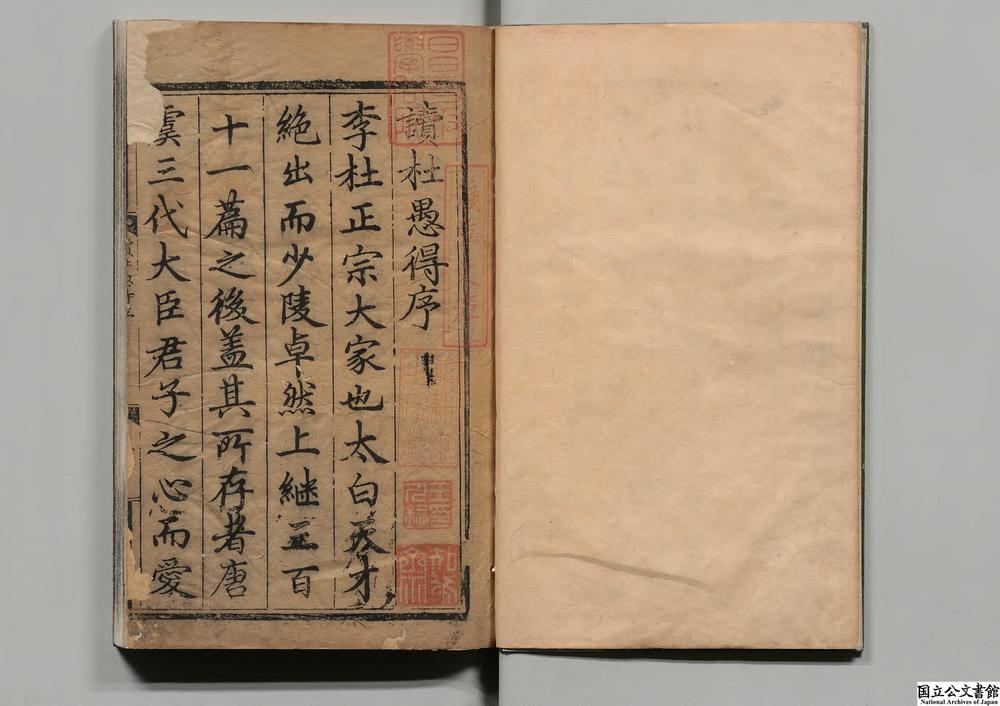 讀杜愚得序
李杜正宗大家也太白天才
絶出而少陵卓然上継三百
十一篇之後盖其所存者唐
虞三代大臣君子之心而愛
国立公文書館
National Archives of Japan